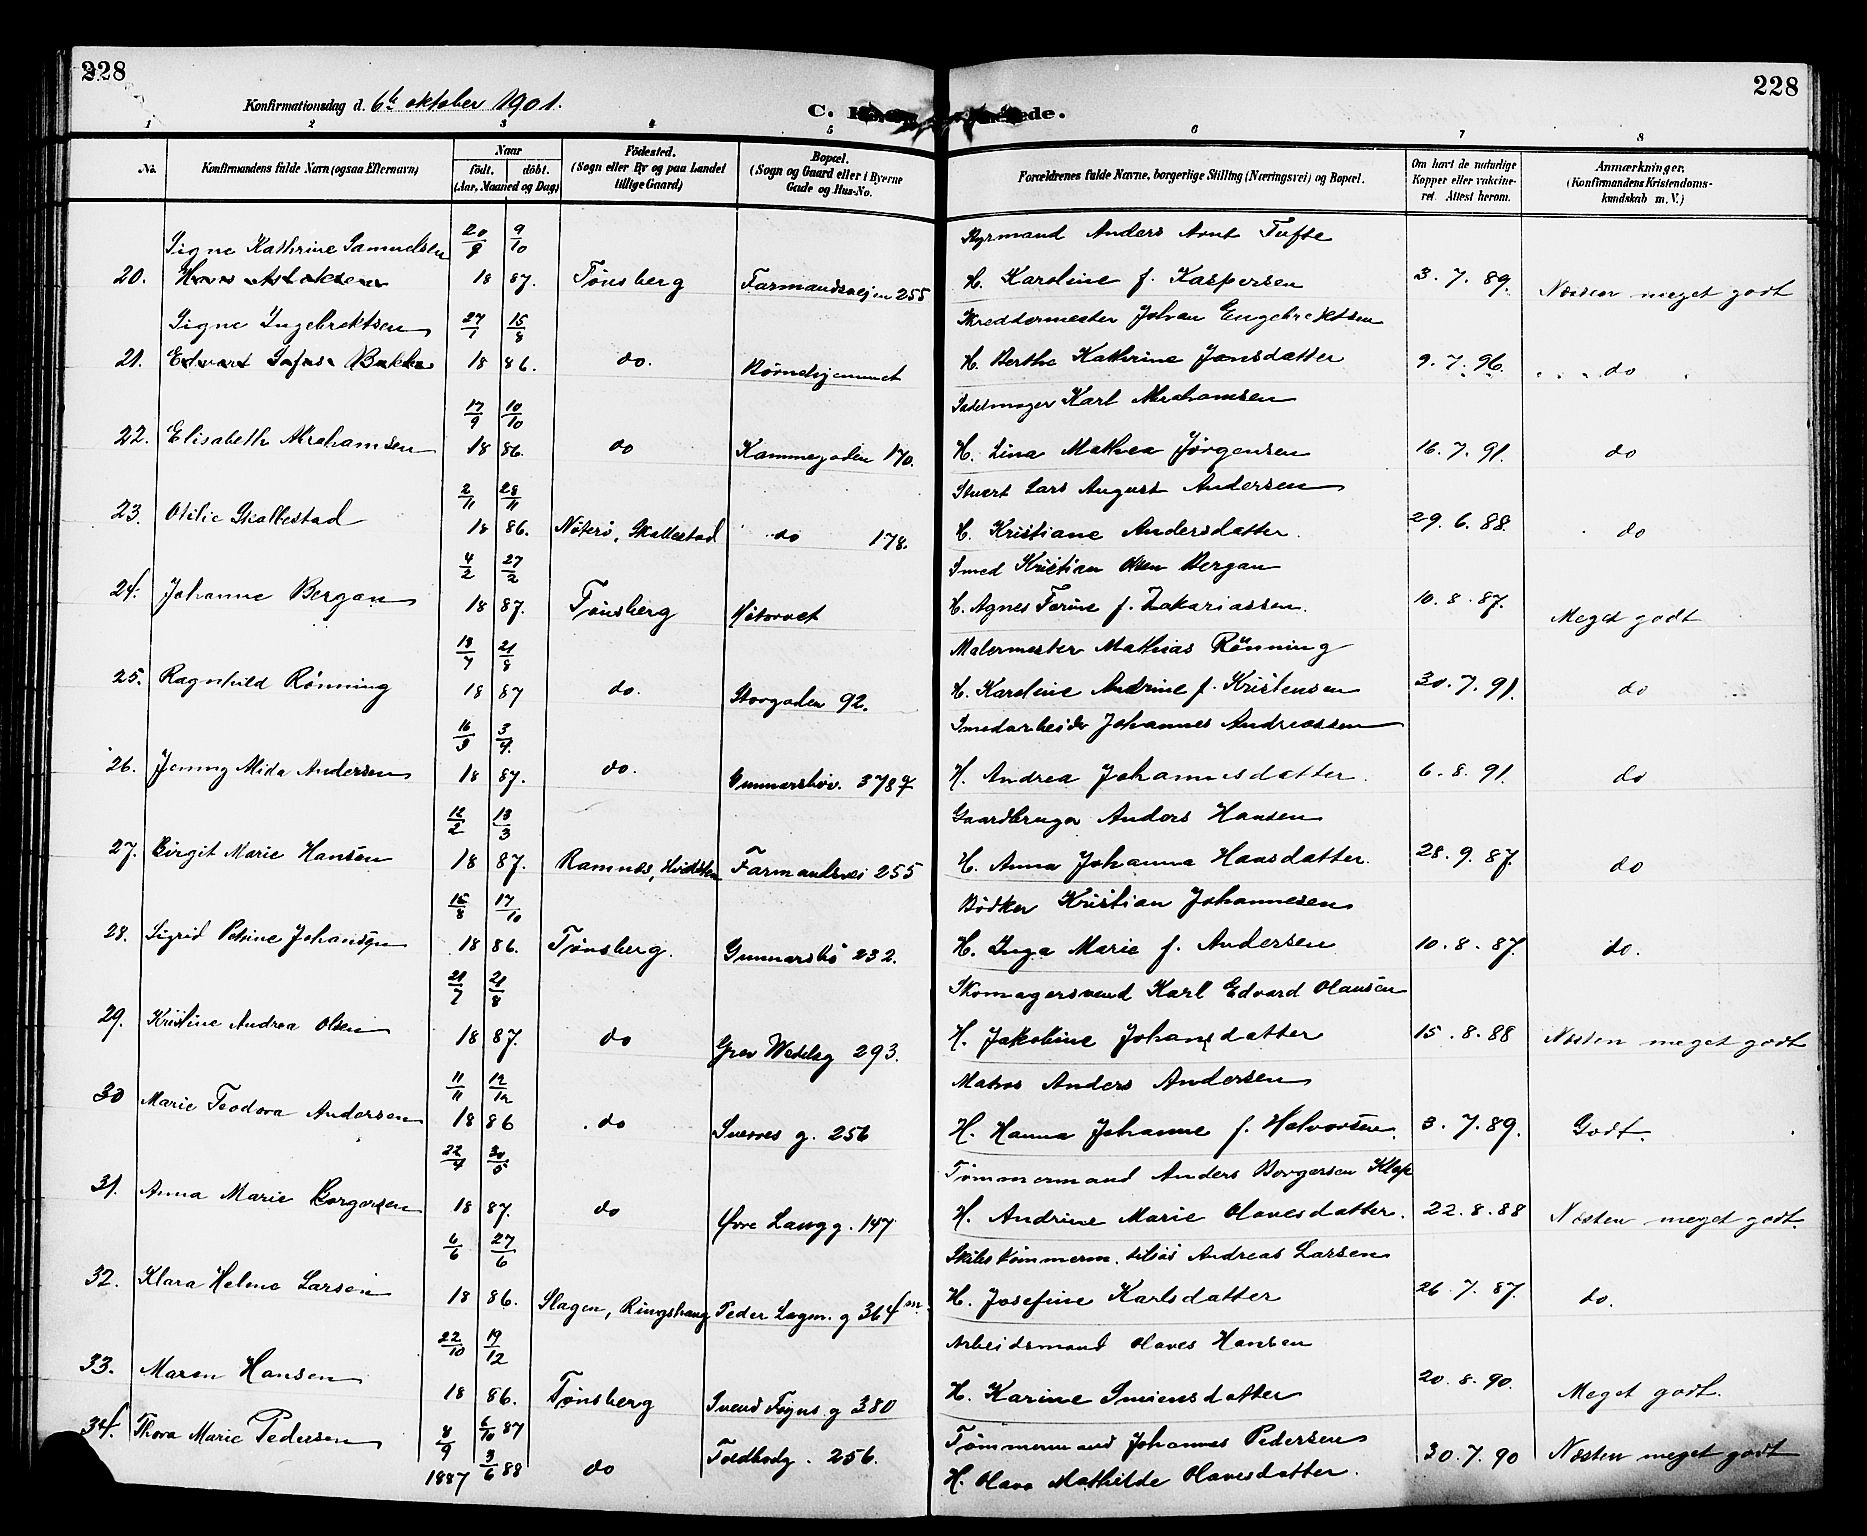 228
228
Konfirmationsdag d. 6te oktober 1901.
C. ede.
1 2 3 4 5 6 7 8
No. Konfirmandens fulde Navn (ogsaa Efternavn) Naar født. døbt. (Aar, Maaned og Dag) Fødested. (Sogn eller By og paa Landet tillige Gaard) Bopæl. (Sogn og Gaard eller i Byerne Gade og Hus-No. Forældrenes fulde Navne, borgerlige Stilling (Næringsvei) og Bopæl. Om havt de naturlige Kopper eller vakcineret. Attest herom. Anmærkninger. (Konfirmandens Kristendomskundskab m. V.)
Signe Kathrine Samuelsen 20/9 9/10 Styrmand Anders Arnt Tufte
20. 18 87. Tønsberg Farmandsvejen 255 H. Karoline f. Kaspersen 3.7.89. Næsten meget godt
Signe Ingebrektsen 27/1 15/8 Skreddermester Johan Engebrektsen
21. Edvart Bakke 18 86. do. Børnehjemmet H. Berthe Kathrine Jonsdatter 9.7.96. do
17/9 10/10 Sadelmager Karl Abrahamsen
22. Elisabeth Abrahamsen 18 86. do Kammegaden 170. H. Lina Mathea Jørgensen 16.7.91. do
2/11 28/11 Stuert Lars August Andersen
23. Otilie Skallestad 18 86. Nøterø, Skallestad do 178. H. Kristiane Andersdatter. 29.6.88. do
4/2 27/2 Smed Kristian Olsen Bergan
24. Johanne Bergan 18 87. Tønsberg Høtorvet H. Agnes Torine f. Zakariassen. 10.8.87. Meget godt
13/7 21/8 Malermester Mathias Rønning
25. Ragnhild Rønning 18 87 do. Storgaden 92. H. Karoline Andrine f. Kristensen 30.7.91. do
16/3 3/4. Smedarbeider Johannes Andreassen
26. Jenny Alida Andersen 18 87. do. Gunnarsbøv. 378 H. Andrea Johannesdatter. 6.8.91. do
12/2 13/3 Gaardbruger Anders Hansen
27. Birgit Marie Hansen 18 87. Ramnes, Hvidsten Farmandsvei 255 H. Anna Johanna Hansdatter. 28.9.87. do
15/8 17/10 Bødker Kristian Johannesen
28. Sigrid Petrine Johansen 18 86. Tønsberg. Gunnarsbø 232. H. Inga Marie f. Andersen 10.8.87. do.
21/7 21/8 Skomagersvend Karl Edvard Olausen
29. Kristine Andrea Olsen 18 87. do Grev Wedelsg 293. H. Jakobine Johansdatter 15.8.88 Næsten meget godt
11/11 12/12 Matros Anders Andersen
30 Marie Teodora Andersen 18 86 do Sverres g. 256 H. Hanna Johanne f. Halvorsen. 3.7.89. Godt.
22/4 30/5 Tømmermand Anders Borgersen Klop
31. Anna Marie Borgersen 18 87. do Øvre Langg. 147 H. Andrine Marie Olavesdatter. 22.8.88 Næsten meget godt.
6/6 27/6 Skibstømmerm. Andreas Larsen
32. Klara Helene Larsen 18 86. Slagen, Ringshaug Peder Lagm. g 364 m. H. Josefine Karlsdatter 26.7.87. do.
22/10 19/12 Arbeidsmand Olaves Hansen
33. Maren Hansen 18 86. Tønsberg Svend Foyns g 380 H. Karine Simensdatter 20.8.90. Meget godt.
34. Thora Marie Pedersen 8/9 6/10 87 Tømmermand Johannes Pedersen
1887 3/6 88 do Toldbodg. 256. H. Olava Mathilde Olavesdatter. 30.7.90 Næsten meget godt